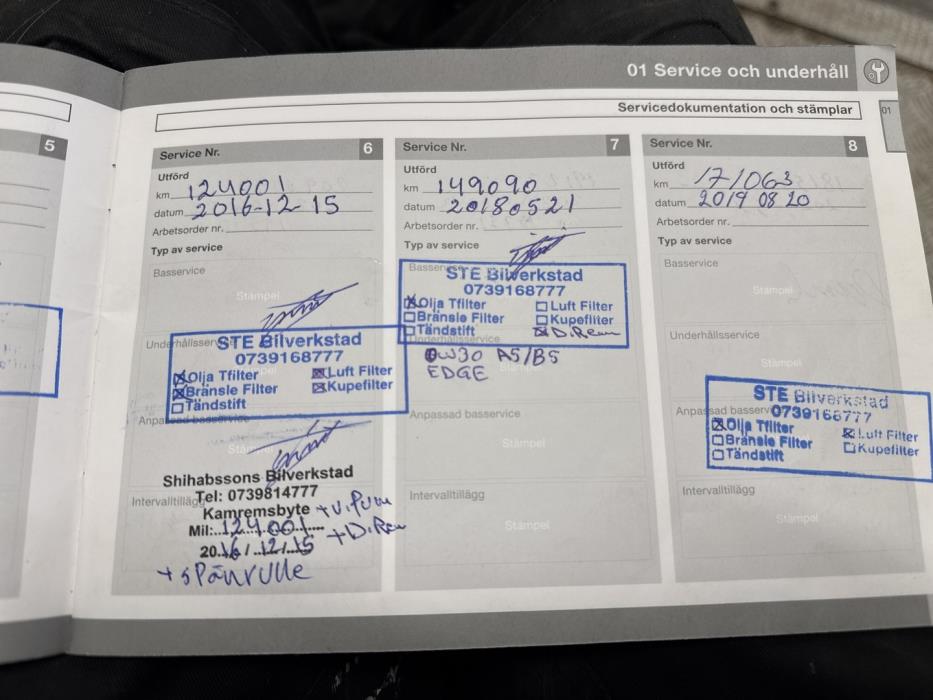 01 Service och underhåll
Servicedokumentation och stämplar
01
5
Service Nr. 6
Utfört
km 124001
datum 2016-12-15
Arbetsorder nr.
Typ av service
Basservice
Stämpel
Underhållsservice
STE Bilverkstad
0739168777
Olja Tfilter Luft Filter
Bränsle Filter Kupefilter
Tändstift
Anpassad basservice
Stämpel
Shihabssons Bilverkstad
Intervalltillägg
Tel: 0739814777
Kamremsbyte
Mil:..124001....
2016/12/15
+ D.Rem
+ spänrulle
Service Nr. 7
Utfört
km 149090
datum 20180521
Arbetsorder nr.
Typ av service
Basservice
STE Bilverkstad
0739168777
Olja Tfilter Luft Filter
Bränsle Filter Kupefilter
Tändstift D.Rem
Underhållsservice
0W30 A5/B5
EDGE
Stämpel
Anpassad basservice
Stämpel
Intervalltillägg
Stämpel
Service Nr. 8
Utfört
km 171063
datum 2019 08 20
Arbetsorder nr.
Typ av service
Basservice
Stämpel
Underhållsservice
Stämpel
STE Bilverkstad
Anpassad basservice
0739168777
Olja Tfilter Luft Filter
Bränsle Filter Kupefilter
Tändstift
Intervalltillägg
Stämpel